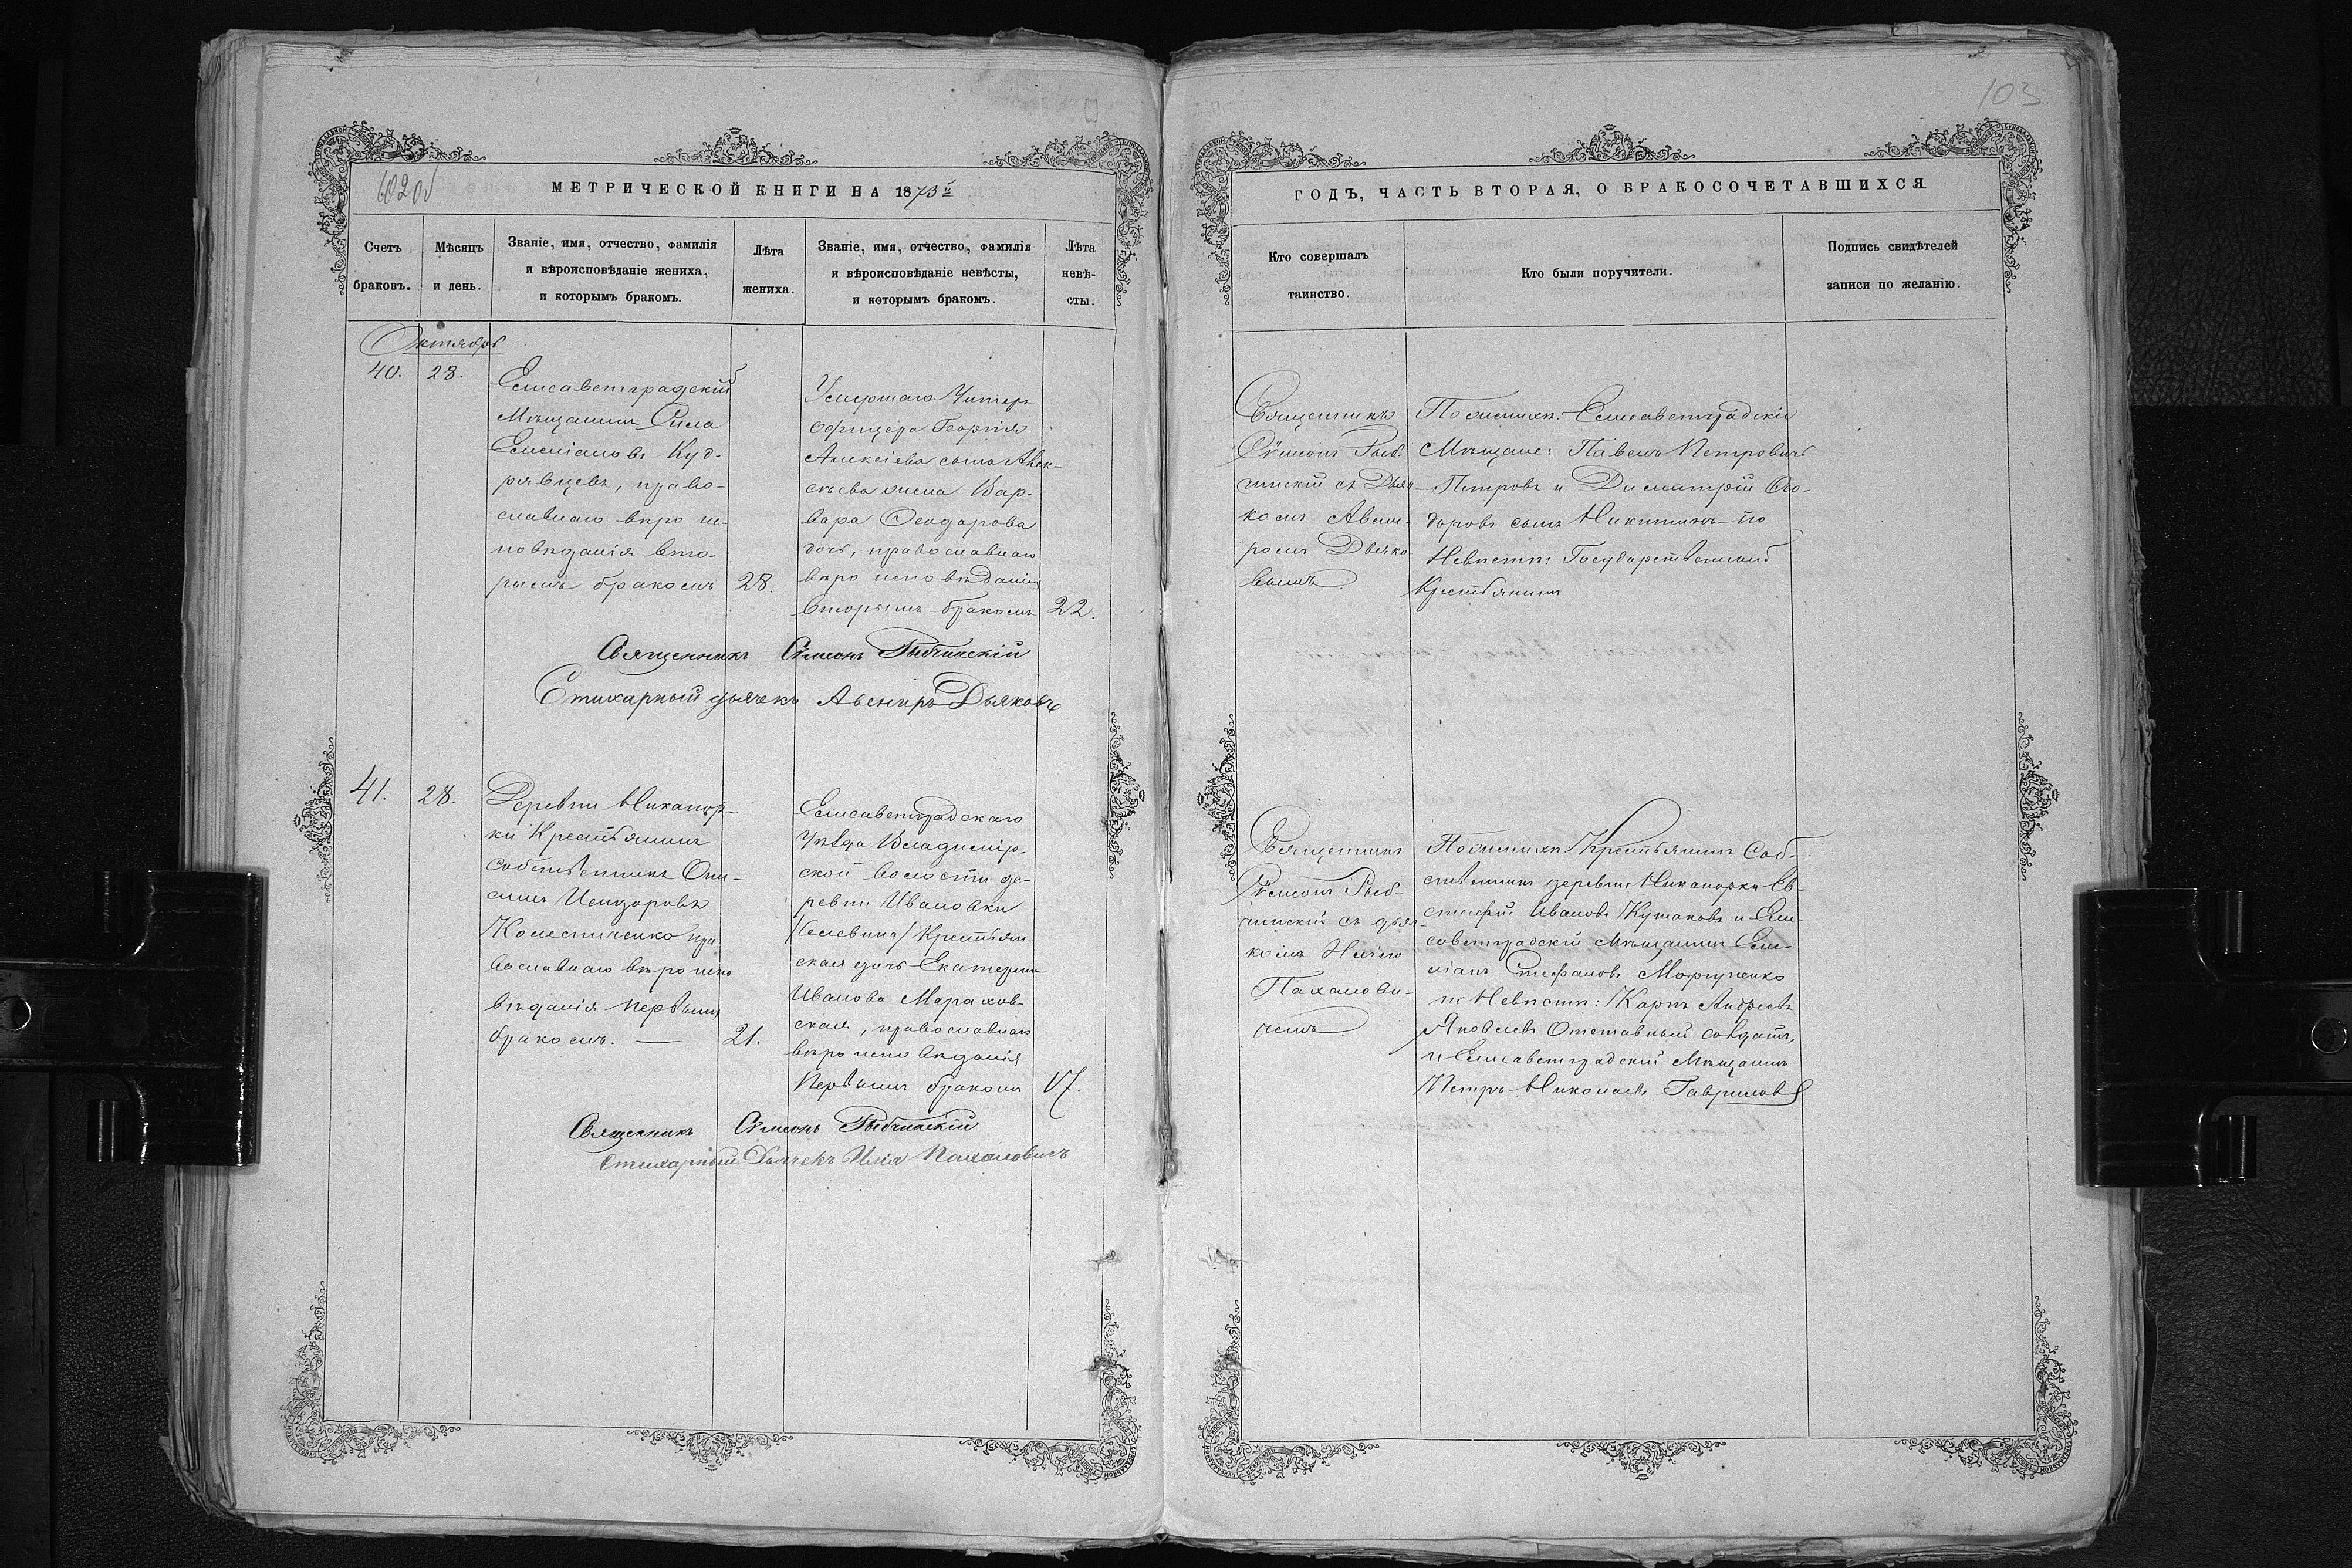 103
МЕТРИЧЕСКОЙ КНИГИ НА 1873й
Счетъ браковъ.
Мѣсяцъ и день.
Званіе, имя, отчество, фамилія
и вѣроисповѣданіе жениха,
и которымъ бракомъ.
Лѣта жениха.
Званіе, имя, отчество, фамилія
и вѣроисповѣданіе невѣсты,
и которымъ бракомъ.
Лѣта невѣ-
сты.
ГОДЪ, ЧАСТЬ ВТОРАЯ, О БРАКОСОЧЕТАВШИХСЯ
Кто совершалъ
таинство.
Кто были поручители.
Подпись свидѣтелей
записи по желанію.
Октябрь
40.
28.
Елисаветградскій
Мѣщанинъ Сила
Емеліановъ Куд-
рявцевъ, право-
славнаго вѣро ис-
повѣданія вто-
рымъ бракомъ
28.
Умершаго Унтеръ
Офицера Георгія
Алексіева сына
жена Вар-
вара Ѳеодорова
дочь, православнаго
вѣро исповѣданія
вторымъ бракомъ
22.
Священникъ
Сѵмеонъ Рыб-
чинскій съ Дьяч-
комъ Авени-
ромъ Дьяко-
вымъ
По женихѣ: Елисаветградскіе
Мѣщане: Павелъ Петровичъ
Петровъ и Димитрій Ѳео-
доровъ сынъ Никитинъ по
Невѣстѣ: Государственный
Крестьянинъ
Священникъ Сѵмеонъ Рыбчинскій
Стихарный дьячекъ Авениръ Дьяковъ
41.
28.
Деревни Никанор-
ки Крестьянинъ
собственникъ Они-
симъ Исидоровъ
Колесниченко пра
вославнаго вѣро испо
вѣданія первымъ
бракомъ.
21.
Елисаветградскаго
Уѣзда Владимір-
ской волости де-
ревни Ивановки
/Селевина/ Крестьян-
ская дочь Екатерина
Иванова Марахов-
ская, православнаго
вѣро исповѣданія
Первымъ бракомъ
17.
Священникъ
Сѵмеонъ Рыб-
чинскій съ дьяч-
комъ Иліею
Пахалови-
чемъ
По женихѣ: Крестьянинъ Соб-
ственникъ деревни Никанорки Ев-
стафій Ивановъ Кушаковъ и Ели-
саветградскій Мѣщанинъ Еме-
ліанъ Стефановъ Моргуненко
по Невѣстѣ: Карпъ Андреевъ
Яковлевъ Отставный солдатъ,
и Елисаветградскій Мѣщанинъ
Петръ Николаевъ Гавриловъ
Священникъ Сѵмеонъ Рыбчинскій
Стихарный Дьячекъ Илія Пахаловичъ